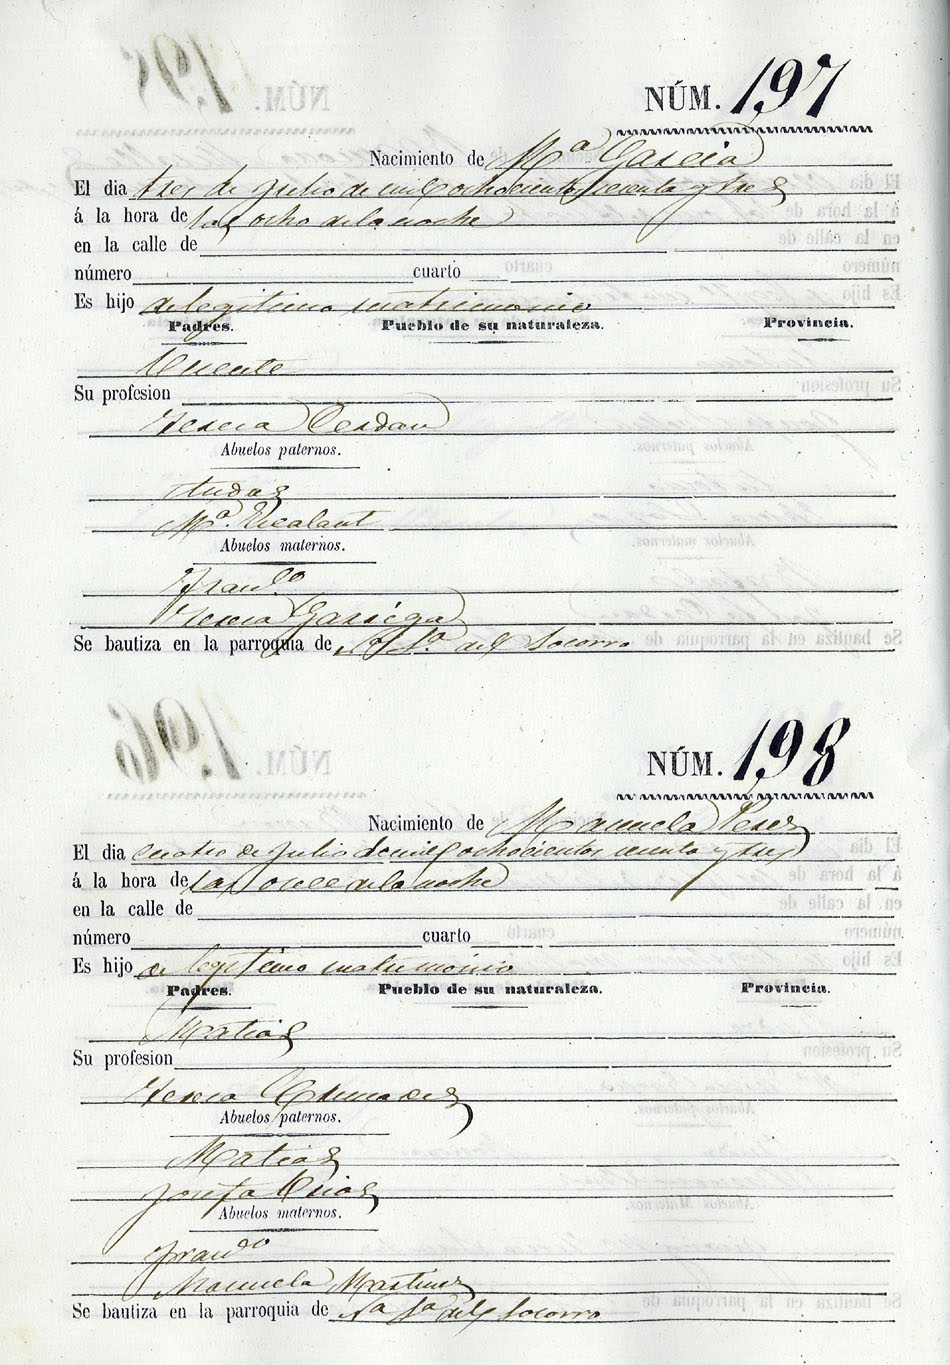 NÚM. 197
Nacimiento de Mª Garcia
El dia tres de Julio de mil ochocientos sesenta y tres
á la hora de las ocho de la noche
en la calle de
número cuarto
Es hijo de legitimo matrimonio
Padres. Pueblo de su naturaleza. Provincia.
Vicente
Su profesion
Teresa Cerdan
Abuelos paternos.
Mª.
Abuelos maternos.
Franco
Teresa Garriga
Se bautiza en la parroquia de Nª Sª. del Socorro
NÚM. 198
Nacimiento de Manuela Perez
El dia cuatro de Julio de mil ochocientos sesenta y tres
á la hora de las once de la noche
en la calle de
número cuarto
Es hijo de legitimo matrimonio
Padres. Pueblo de su naturaleza. Provincia.
Matias
Su profesion
Teresa
Abuelos paternos.
Matias
Josefa
Abuelos maternos.
Franco
Manuela Martinez
Se bautiza en la parroquia de Nª Sª del Socorro